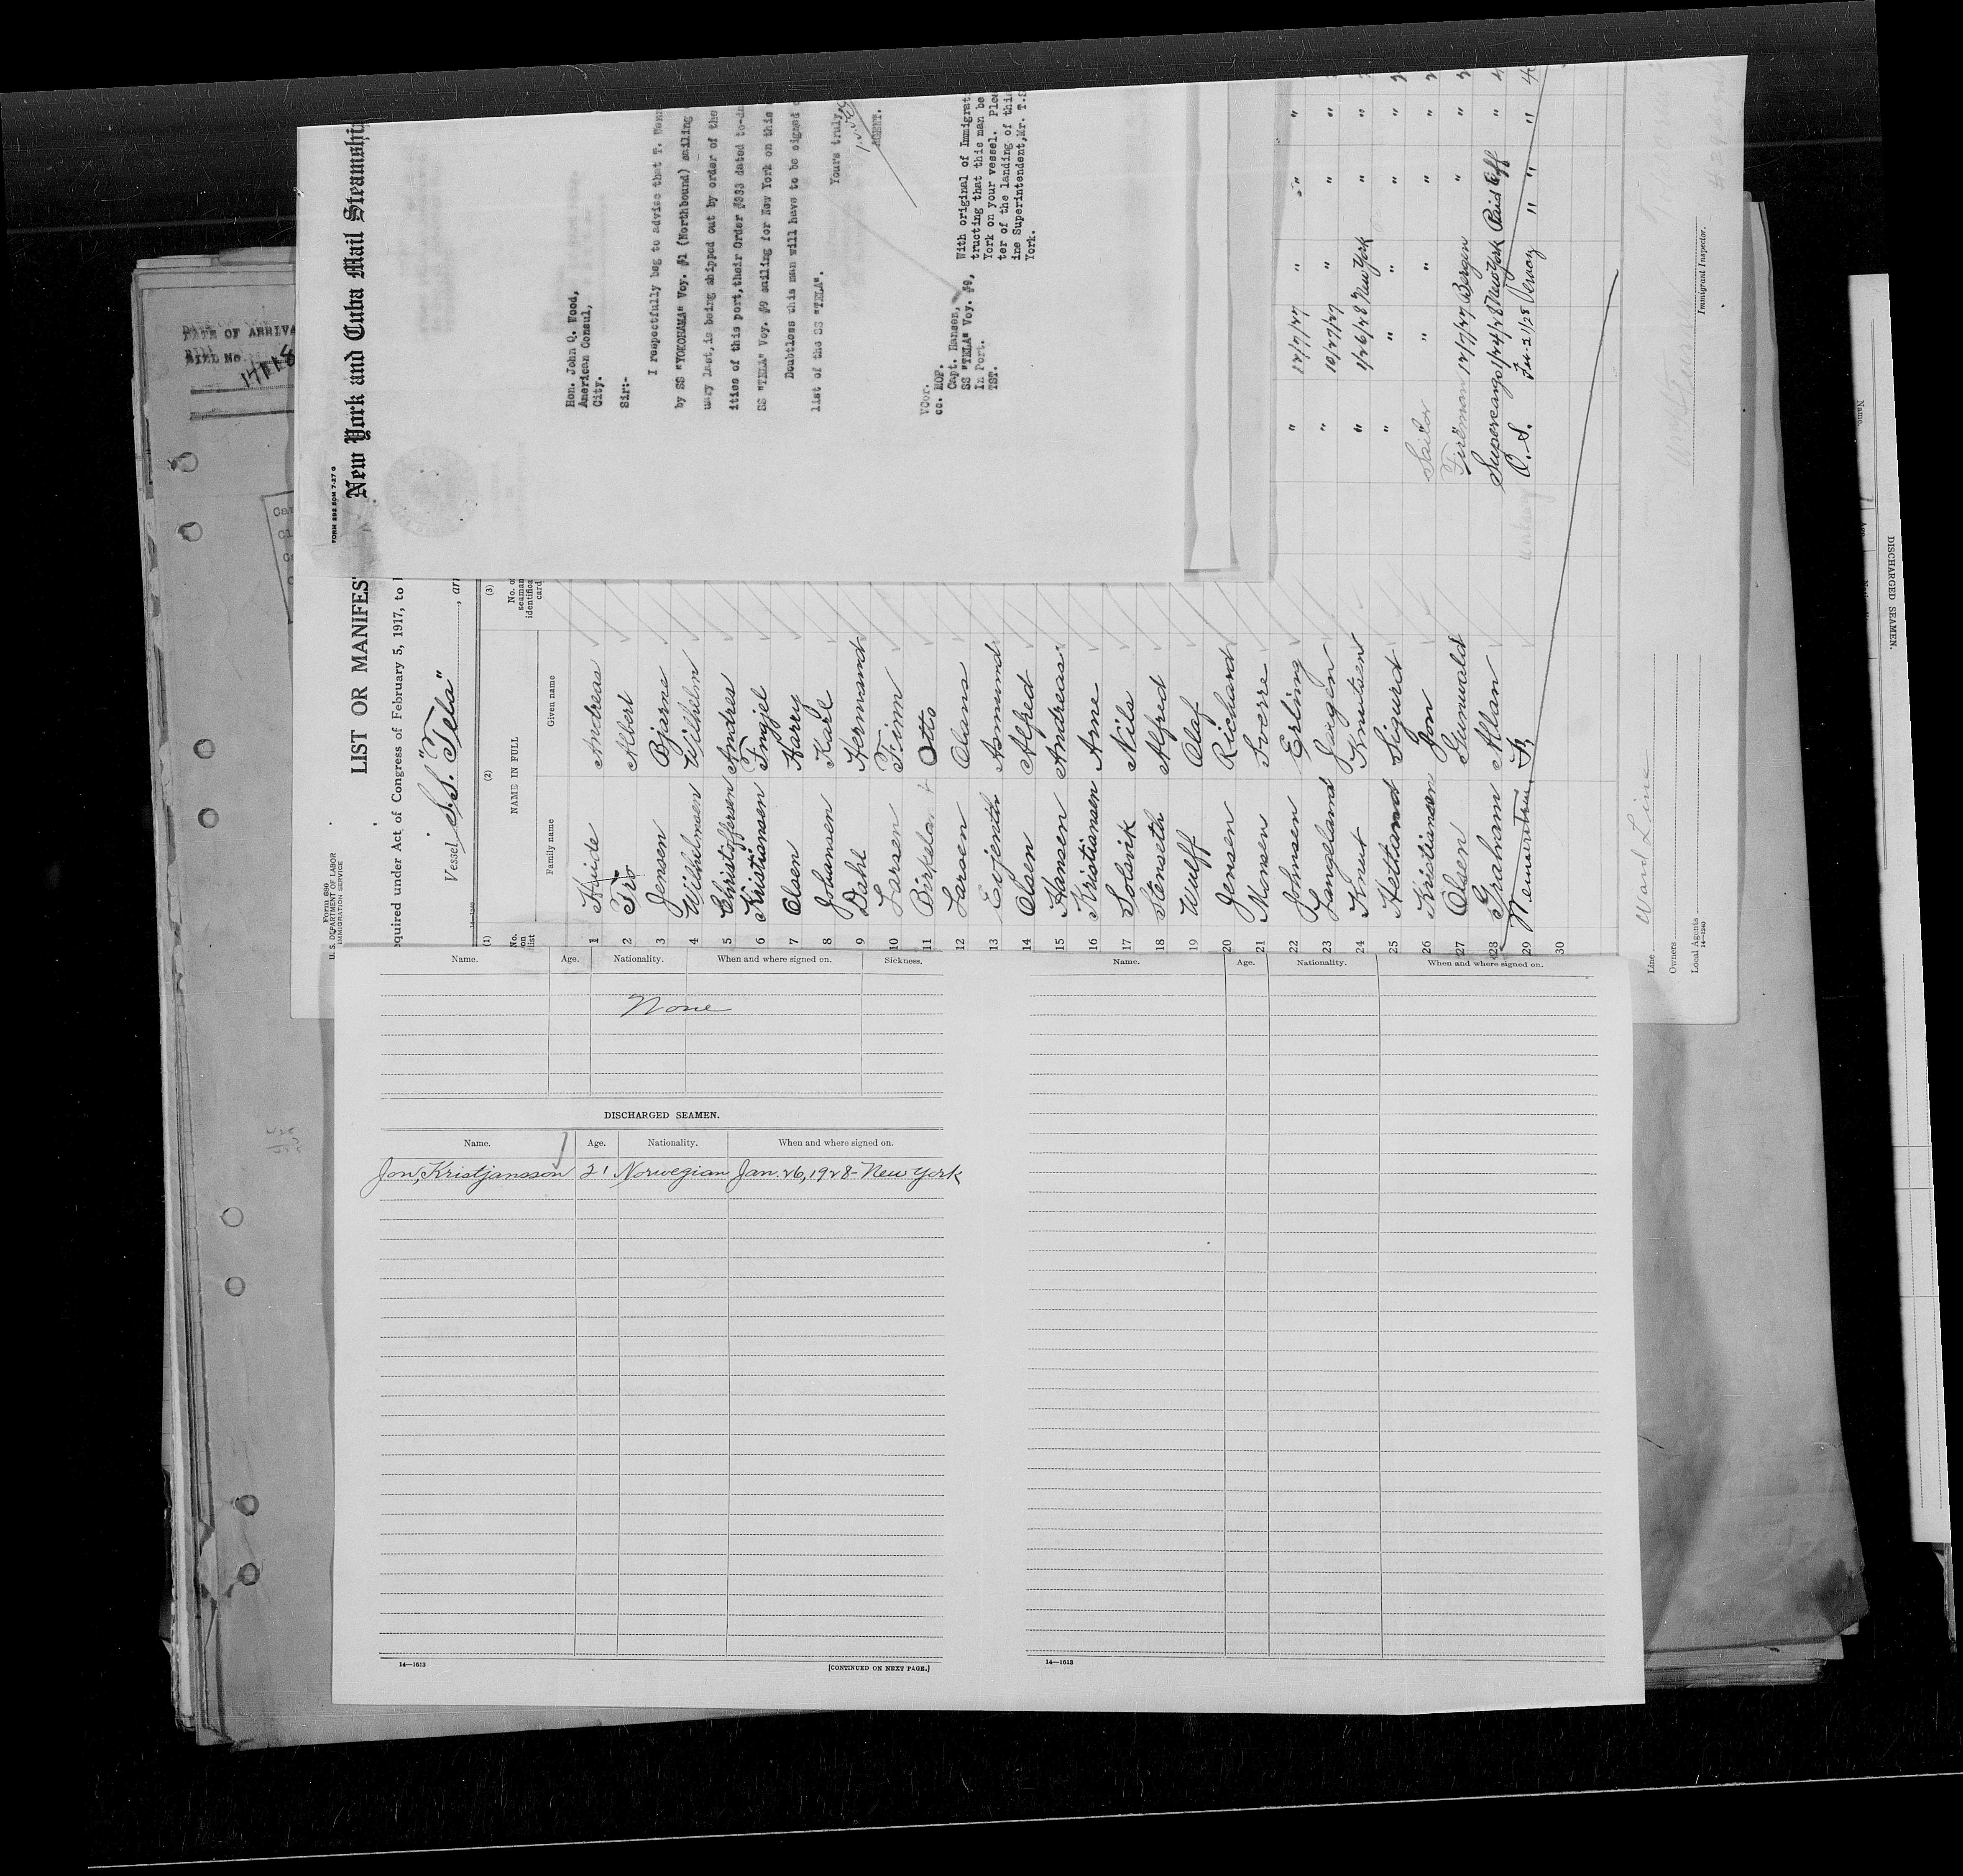 FORM 292 50M 7-27 G
New York and Cuba Mail Steamship
Hon. John Q. Wood,
American Consul,
City.
Sir:-
I respectfully beg to advise that T.
by SS "YOKOHAMA" Voy. #1 (Northbound) sailing
uary last, is being shipped out by order of the
ities of this port, their Order #333 dated to-da
SS "TELA" Voy. #9 sailing for New York on this
Doubtless this man will have to be signed o
list of the SS "TELA".
Yours truly,
AGENT.
VCor.
cc. HOP.
Capt. Hansen,
SS "TELA" Voy. #9,
In Port.
TST.
With original of Immigrat
tructing that this man be
York on your vessel. Plea
ter of the landing of this
ine Superintendent, Mr. T.S
York.
U. S. DEPARTMENT OF LABOR
IMMIGRATION SERVICE
Form 680
LIST OR MANIFES
equired under Act of Congress of February 5, 1917, to
Vessel S.S. "Tela", arr
(1) (2) (3)
No. on list
NAME IN FULL
Family name Given name
No. of seaman identifica card
1 Heide Andreas
2 Fro Albert
3 Jensen Bjarne
4 Wilhelmsen Wilhelm
5 Christoffersen Andres
6 Kristiansen Tngjel
7 Olsen Harry
8 Johansen Karl
9 Dahl Hermand
10 Larsen Finn
11 Birkeland Otto
12 Larsen Olans
13 Evjenth Asmund
14 Olsen Alfred
15 Hansen Andreas
16 Kristiansen Arne
17 Solsvik Nils
18 Stenseth Alfred
19 Wulff Olaf
20 Jensen Richard
21 Monsen Sverre
22 Johnsen Erling " 12/7/27 " " "
23 Langeland Jorgen " 10/27/27 " " "
24 Knut Knutsen " 1/26/28 New York " "
25 Hettand Sigurd " " " " "
26 Kristiansen Jon Sailor " " " "
27 Olsen Gunwald Fireman 12/7/27 Bergen " "
28 Graham Allan Supercargo 1/24/28 New York Paid Off "
29 O. S. Feb-21/28 " " "
30
Line Ward Line
Owners
Local Agents
14-1240
Immigrant Inspector.
DATE OF ARRIVA
17118
Name. Age. Nationality. When and where signed on. Sickness.
None
DISCHARGED SEAMEN.
Name. Age. Nationality. When and where signed on.
Jon, Kristjansson 21 Norwegian Jan. 26, 1928 - New York
14—1613
[CONTINUED ON NEXT PAGE.]
Name. Age. Nationality. When and where signed on.
14—1613
DISCHARGED SEAMEN.
Name.